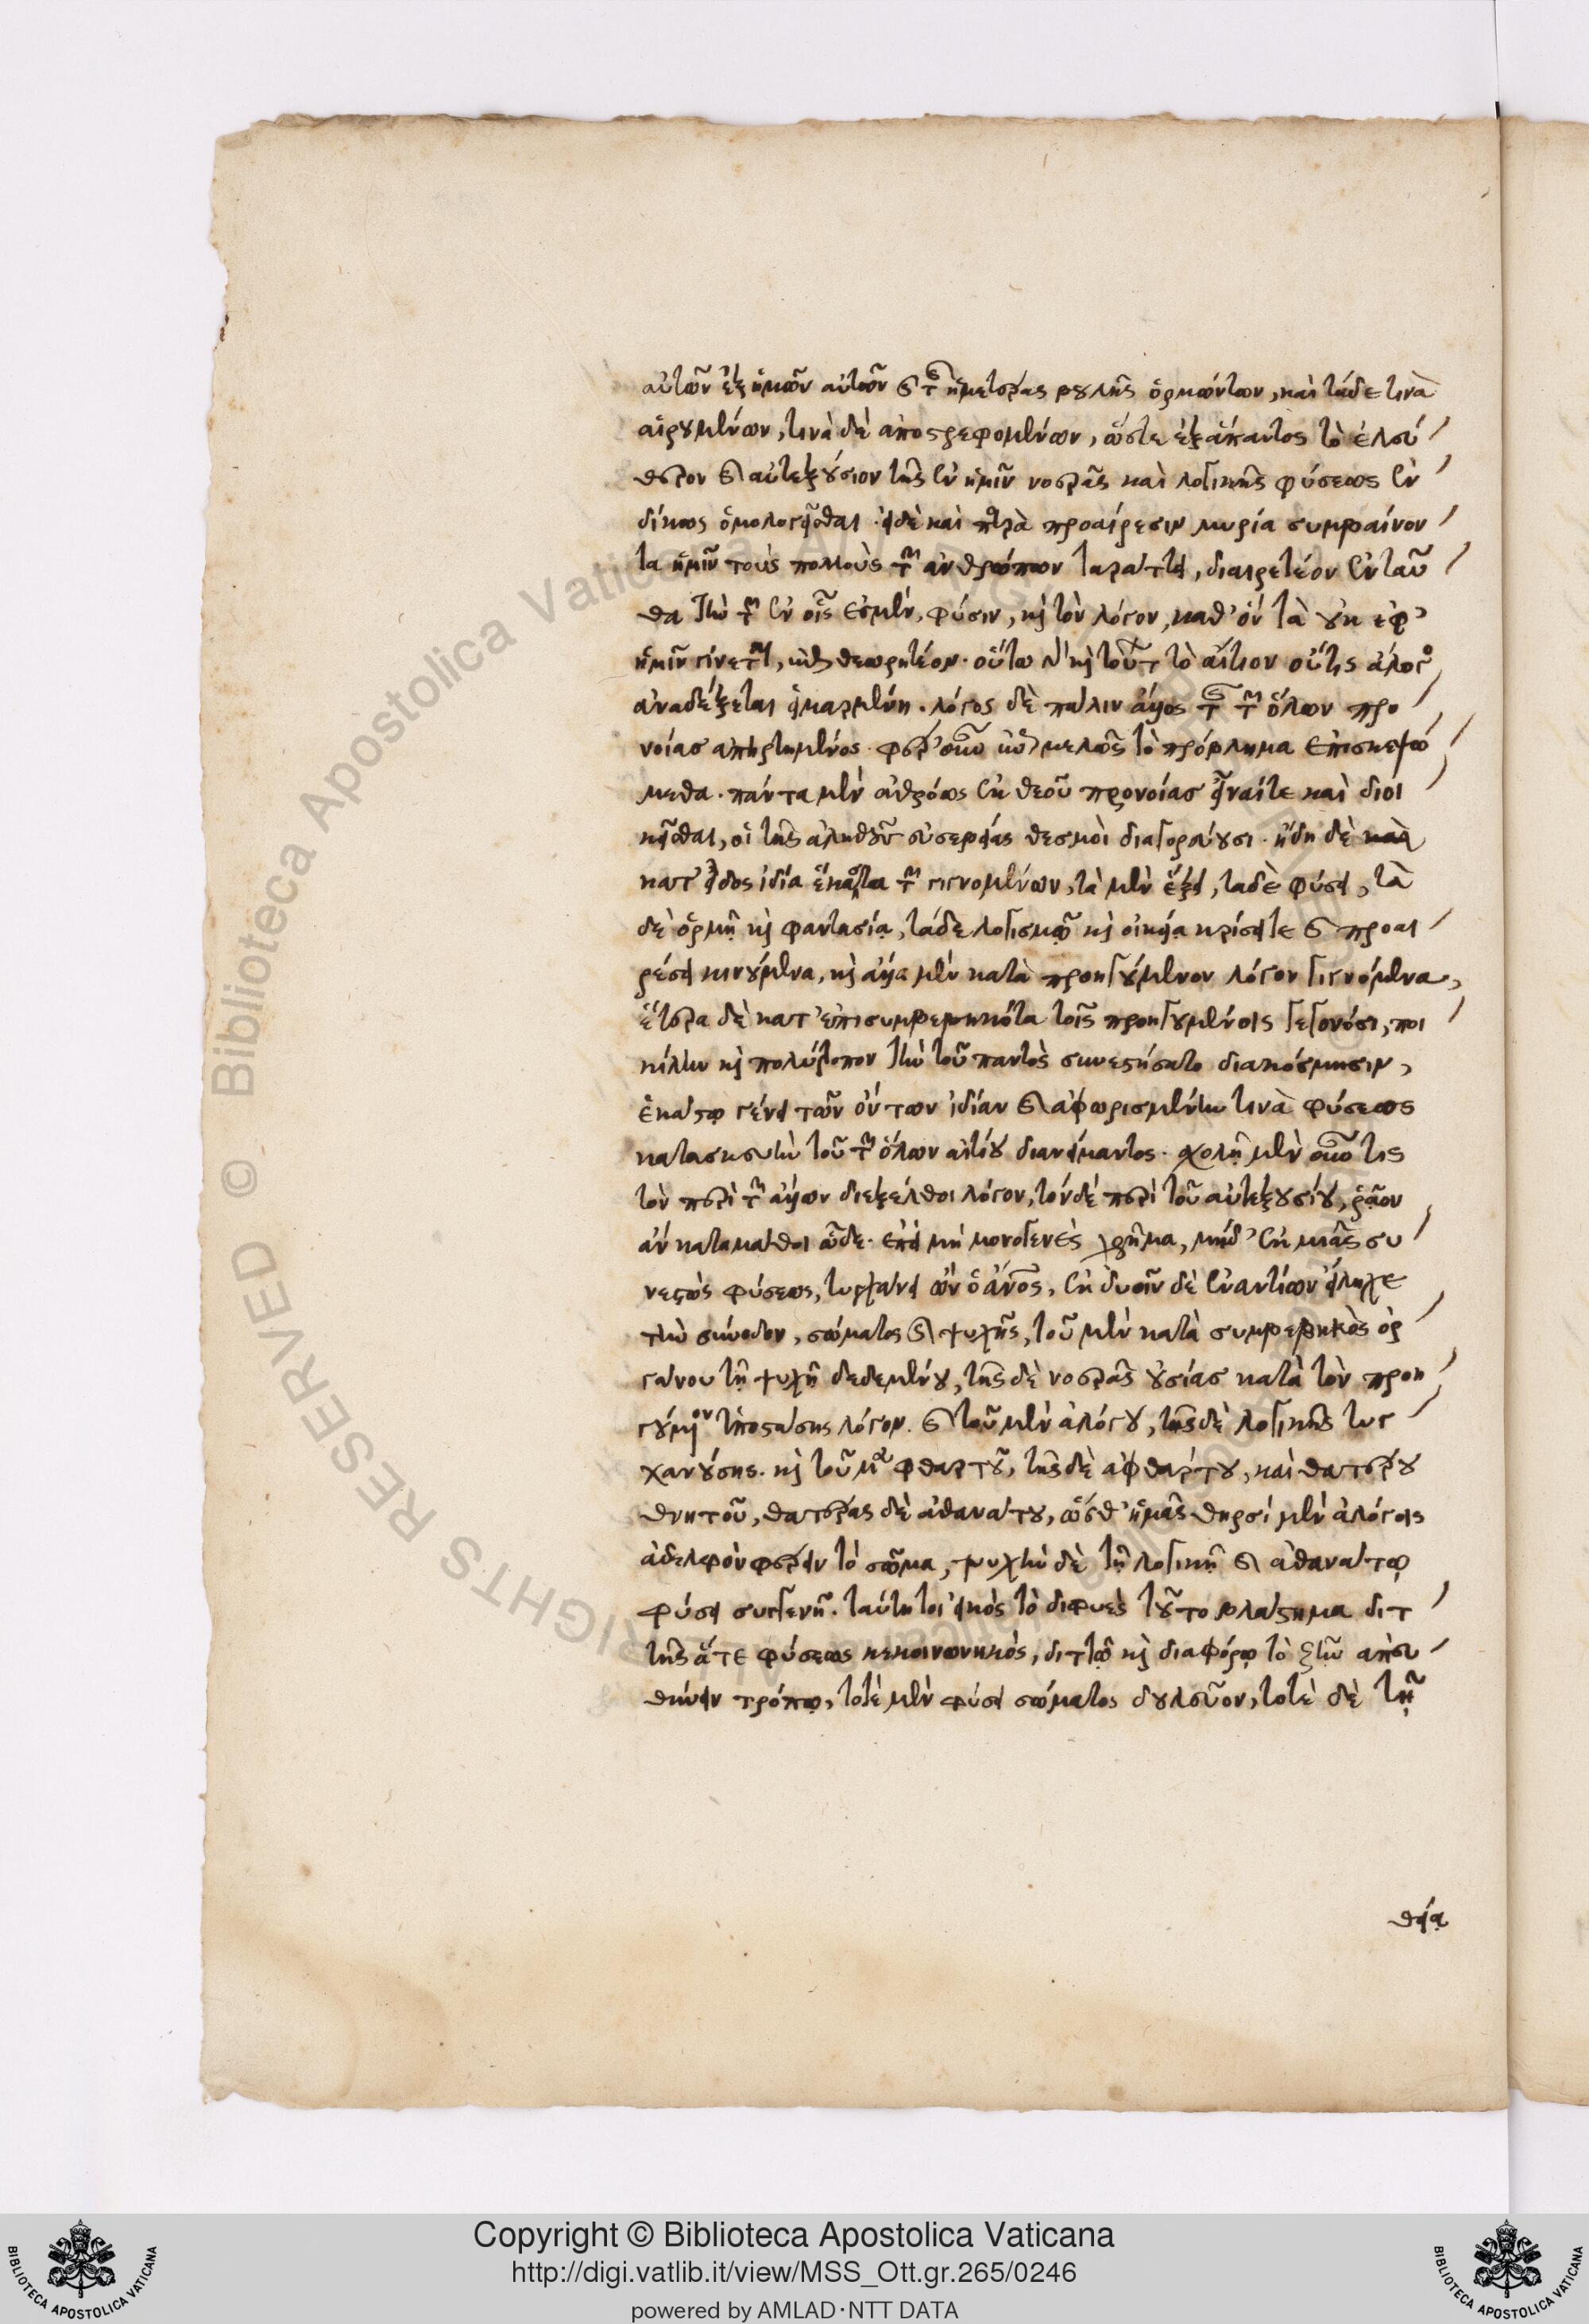 αὐτῶν ἐξ ἡμῶν αὐτῶν καὶ τῆς ἡμετέρας βουλῆς ὁρμώντων, καὶ τάδε τινὰ
αἱρουμένων, τινὰ δὲ ἀποστρεφομένων, ὥστε ἐξάπαντος τὸ ἐλεύ
θερον καὶ αὐτεξούσιον τῆς ἐν ἡμῖν νοερᾶς καὶ λογικῆς φύσεως ἐν
δίκως ὁμολογεῖσθαι. εἰ δὲ καὶ παρὰ προαίρεσιν μυρία συμβαίνον
τα ἡμῖν τοὺς πολλοὺς τῶν ἀνθρώπων ταράττει, διαιρετέον ἐνταῦ
θα τὴν τῶν ἐν οἷς ἐσμὲν, φύσιν, καὶ τὸν λόγον, καθ' ὃν τὰ οὐκ ἐφ'
ἡμῖν γίνεται, θεωρητέον. οὕτω καὶ τούτων τὸ αἴτιον οὔτις ἄλογος
ἀναδέξεται εἱμαρμένη. λόγος δὲ πάλιν ἄλλος τῆς τῶν ὅλων προ
νοίας ἀπηρτημένος. φέρ' οὖν εὖ μελῶς τὸ πρόβλημα ἐπισκεψώ
μεθα. πάντα μὲν ἀθρόως ἐκ θεοῦ προνοίας εἶναίτε καὶ διοι
κεῖσθαι, οἱ τῆς ἀληθοῦς εὐσεβείας θεσμοὶ διαγορεύουσι. ἤδη δὲ καὶ
κατ' εἶδος ἰδία ἕκαστα τῶν γιγνομένων, τὰ μὲν ἕξει, ταδὲ φύσει, τὰ
δὲ ὁρμῇ καὶ φαντασίᾳ, τάδε λογισμῷ καὶ οἰκείᾳ κρίσειτε καὶ προαι
ρέσει κινούμενα, καὶ ἄλλα μὲν κατὰ προηγούμενον λόγον γιγνόμενα,
ἕτερα δὲ κατ' ἐπισυμβεβηκότα τοῖς προηγουμένοις γεγονόσι, ποι
κίλην καὶ πολύτροπον τὴν τοῦ παντὸς συνεστήσατο διακόσμησιν,
ἑκάστῳ γένει τῶν ὄντων ἰδίαν καὶ ἀφωρισμένην τινὰ φύσεως
κατασκευὴν τοῦ τῶν ὅλων αἰτίου διανείμαντος. σχολῇ μὲν οὖν τις
τὸν περὶ τῶν ἄλλων διεξέλθοι λόγον, τόνδὲ περὶ τοῦ αὐτεξουσίου, ῥᾷον
ἂν καταμάθοι ὧδε. ἐπεὶ μὴ μονογενὲς χρῆμα, μήδ' ἐκ μιᾶς συ
νεστὼς φύσεως, τυγχάνει ὢν ὁ ἄνος, ἐκ δυοῖν δὲ ἐναντίων εἴληχε
τὴν σύνοδον, σώματος καὶ ψυχῆς, τοῦ μὲν κατὰ συμβεβηκὸς ὀρ
γάνου τῇ ψυχῇ δεδεμένου, τῆς δὲ νοερᾶς οὐσίας κατὰ τὸν προη
γούμενον ὑποστάσης λόγον. καὶ τοῦ μὲν ἀλόγου, τῆς δὲ λογικῆς τυγ
χανούσης. καὶ τοῦ μὲν φθαρτοῦ, τῆς δὲ ἀφθάρτου, καὶ θατέρου
θνητοῦ, θατέρας δὲ ἀθανάτου, ὥσθ' ἡμᾶς θηρσὶ μὲν ἀλόγοις
ἀδελφὸν φέρειν τὸ σῶμα, ψυχὴν δὲ τῇ λογικῇ καὶ ἀθανάτῳ
φύσει συγγενῆ. ταύτητοι εἰκὸς τὸ διφυὲς τοῦτο βλάστημα διτ
τῆς ἅτε φύσεως κεκοινωνηκός, διττῷ καὶ διαφόρῳ τὸ ζῆν ἀπευ
θύνειν τρόπῳ, τοτὲ μὲν φύσει σώματος δουλεῦον, τοτὲ δὲ τῇ
θείᾳ
Copyright © Biblioteca Apostolica Vaticana
http://digi.vatlib.it/view/MSS_Ott.gr.265/0246
powered by AMLAD·NTT DATA